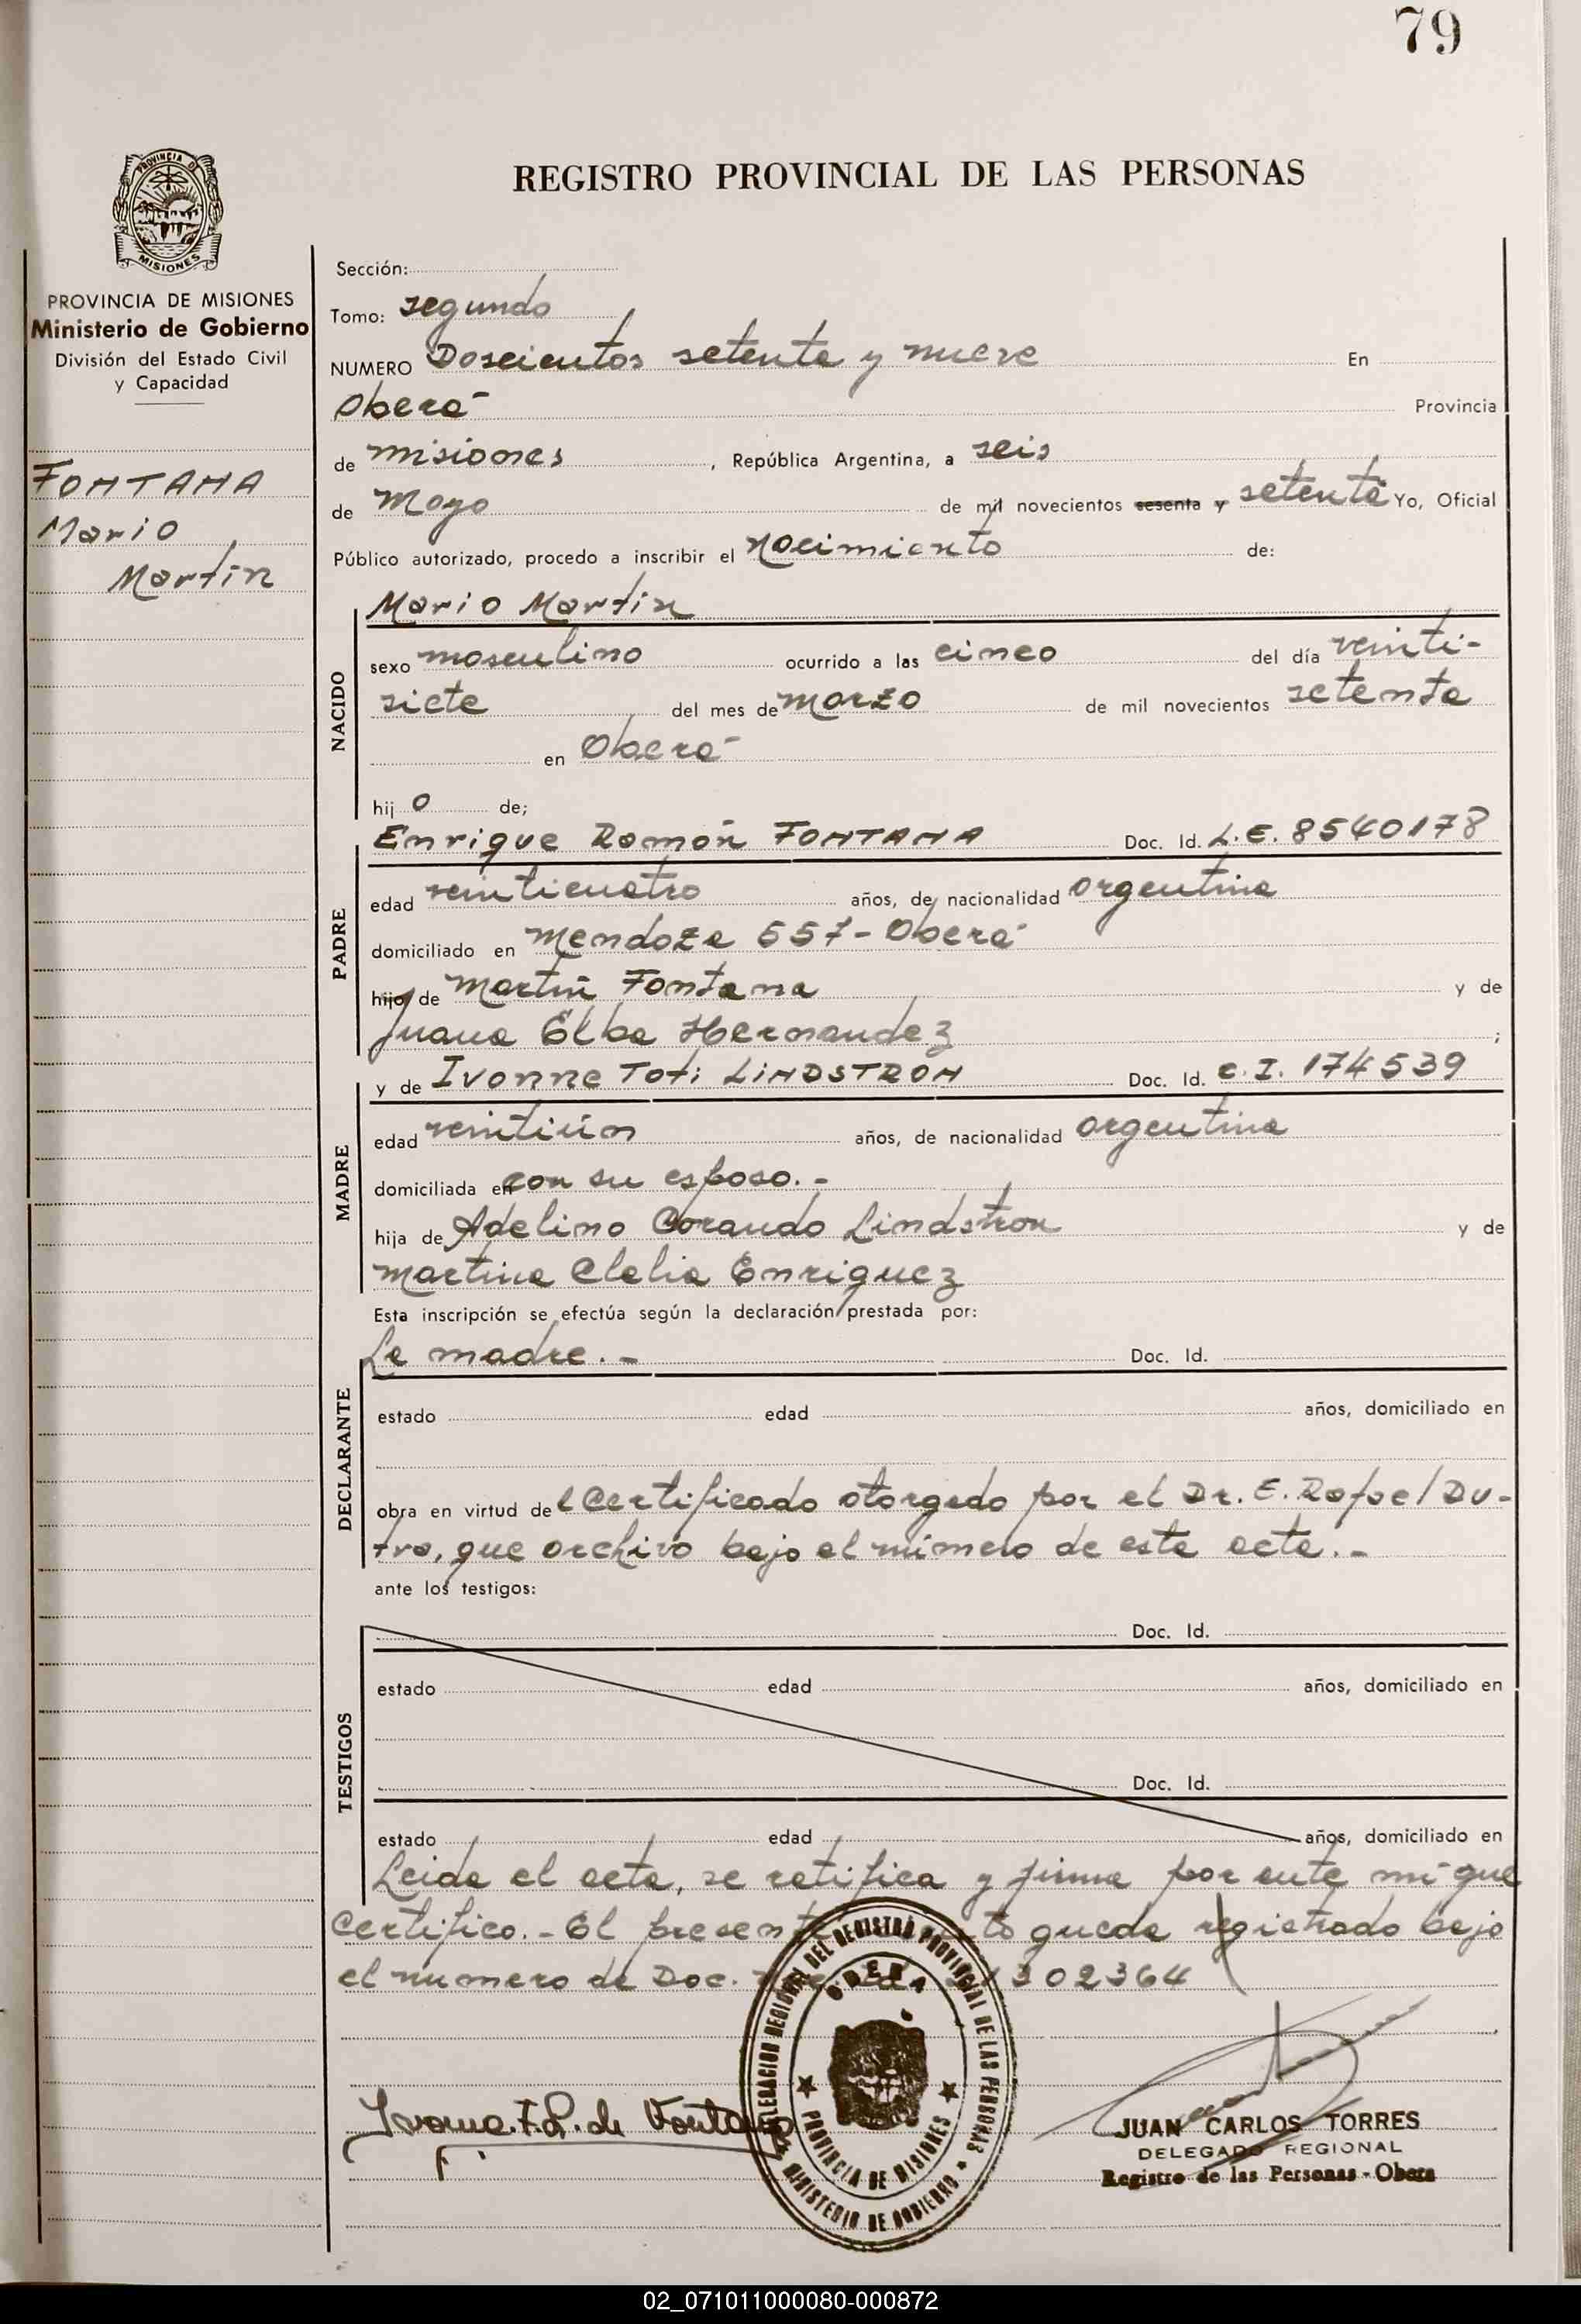 79
PROVINCIA DE
MISIONES
PROVINCIA DE MISIONES
Ministerio de Gobierno
División del Estado Civil
y Capacidad
FONTANA
Mario
Martín
REGISTRO PROVINCIAL DE LAS PERSONAS
Sección:
Tomo: segundo
NUMERO Doscientos setenta y nueve En
Oberá Provincia
de Misiones, República Argentina, a seis
de Mayo de mil novecientos sesenta y setenta Yo, Oficial
Público autorizado, procedo a inscribir el nacimiento de:
NACIDO
Mario Martín
sexo masculino ocurrido a las cinco del día veinti-
siete del mes de marzo de mil novecientos setenta
en Oberá
hijo de;
PADRE
Enrique Ramón FONTANA Doc. Id. L.E. 8540178
edad veinticuatro años, de nacionalidad argentina
domiciliado en Mendoza 557-Oberá
hijo de Martín Fontana y de
Juana Elba Hernandez ;
MADRE
y de Ivonne Toti LINDSTRON Doc. Id. C.I. 174539
edad veintiún años, de nacionalidad argentina
domiciliada en con su esposo.-
hija de Adelino Corando Lindstron y de
Martina Clelia Enriquez
Esta inscripción se efectúa según la declaración prestada por:
DECLARANTE
La madre.- Doc. Id.
estado edad años, domiciliado en
obra en virtud del Certificado otorgado por el Dr. E. Rafael Du-
tra, que archivo bajo el número de esta acta.-
ante los testigos:
TESTIGOS
Doc. Id.
estado edad años, domiciliado en
Doc. Id.
estado edad años, domiciliado en
Leida el acta, se ratifica y firma por ante mí que
certifico.- El presente queda registrado bajo
el número de Doc. 302364
DELEGACION REGIONAL DEL REGISTRO PROVINCIAL DE LAS PERSONAS
OBERA
PROVINCIA DE MISIONES
MINISTERIO DE GOBIERNO
JUAN CARLOS TORRES
DELEGADO REGIONAL
Registro de las Personas - Obera
02_071011000080-000872